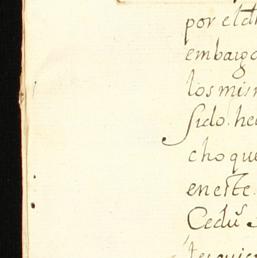 por el d
embarg
los mis
sido. he
cho que
en este.
Cedus